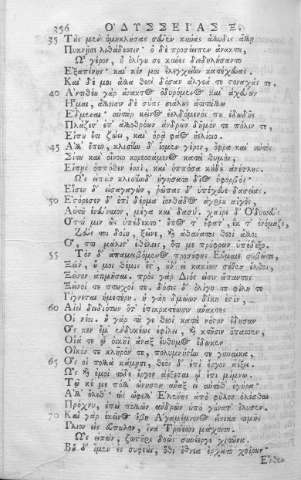 356 Ο ΔΥΣΣΕΙΑΣ Ξ.
35 Τοὺς μὲν ὁμοκλήσας σεῦεν κύνας ἄλλυδις ἄλλον
Πυκνῇσι λιθάδεσσιν· ὁ δὲ προσέειπεν ἄνακτα,
Ὦ γέρον, ἦ ὀλίγου σε κύνες διεδηλήσαντο
Ἐξαπίνης· καί κέν μοι ἐλεγχείην κατέχευας.
Καὶ δέ μοι ἄλλα θεοὶ δόσαν ἄλγεά τε στοναχάς τε·
40 Ἀντιθέου γὰρ ἄνακτος ὀδυρόμενος καὶ ἀχεύων
Ἧμαι, ἄλλοισιν δὲ σύας σιάλους ἀτιτάλλω
Ἔδμεναι· αὐτὰρ κεῖνος ἐελδόμενός που ἐδωδῆς
Πλάζετ' ἐπ' ἀλλοθρόων ἀνδρῶν δῆμόν τε πόλιν τε,
Εἴπου ἔτι ζώει, καὶ ὁρᾷ φάος ἠελίοιο.
45 Ἀλλ' ἕπεο, κλισίην δ' ἴομεν γέρον, ὄφρα καὶ αὐτὸς
Σίτου καὶ οἴνοιο κορεσσάμενος κατὰ θυμὸν,
Εἴπῃς ὁππόθεν ἐσσὶ, καὶ ὁππόσα κήδε' ἀνέτλης.
Ὣς εἰπὼν κλισίηνδ' ἡγήσατο δῖος ὑφορβός·
Εἷσεν δ' εἰσαγαγὼν, ῥῶπας δ' ὑπέχευε δασείας·
50 Ἐστόρεσεν δ' ἐπὶ δέρμα ἰονθάδος ἀγρίου αἰγὸς,
Αὐτοῦ ἐνεύναιον, μέγα καὶ δασύ, χαῖρε δ' Ὀδυσσεὺς
Ὅττι μιν ὣς ὑπέδεκτο· ἔπος τ' ἔφατ', ἔκ τ' ὀνόμαζε·
Ζεύς τοι δοίη, ξεῖνε, καὶ ἀθάνατοι θεοὶ ἄλλοι
Ὅ,ττι μάλιστ' ἐθέλεις, ὅτι με πρόφρων ὑπέδεξο.
55 Τὸν δ' ἀπαμειβόμενος προσέφης Εὔμαιε συβῶτα,
Ξεῖν', οὔ μοι θέμις ἔστ', οὐδ' εἰ κακίων σέθεν ἔλθοι,
Ξεῖνον ἀτιμῆσαι, πρὸς γὰρ Διός εἰσιν ἅπαντες
Ξεῖνοί τε πτωχοί τε, δόσις δ' ὀλίγη τε φίλη τε
Γίνεται ἡμετέρη· ἡ γὰρ δμώων δίκη ἐστὶν,
60 Αἰεὶ δειδιότων ὅτ' ἐπικρατέωσιν ἄνακτες
Οἱ νέοι. ἦ γὰρ τοῦ γε θεοὶ κατὰ νόστον ἔδησαν
Ὅς κεν ἔμ' ἐνδυκέως ἐφίλει, καὶ κτῆσιν ὄπασσεν,
Οἷά τε ᾧ οἰκῆϊ ἄναξ εὔθυμος ἔδωκεν
Οἶκόν τε κλῆρόν τε, πολυμνήστην τε γυναῖκα,
65 Ὅς οἱ πολλὰ κάμῃσι, θεὸς δ' ἐπὶ ἔργον ἀέξει·
Ὡς καὶ ἐμοὶ τόδε ἔργον ἀέξεται ᾧ ἐπιμίμνω.
Τῷ κέ με πόλλ' ὤνησεν ἄναξ εἰ αὐτόθ' ἐγήρα·
Ἀλλ' ὄλεθ'· ὡς ὤφελλ' Ἑλένης ἀπὸ φῦλον ὀλέσθαι
Πρόχνυ, ἐπεὶ πολλῶν ἀνδρῶν ὑπὸ γούνατ' ἔλυσεν.
70 Καὶ γὰρ κεῖνος ἔβη Ἀγαμέμνονος εἵνεκα τιμῆς
Ἴλιον εἰς εὔπωλον, ἵνα Τρώεσσι μάχοιτο.
Ὣς εἰπὼν, ζωστῆρι θοῶς συνέεργε χιτῶνα·
Βῆ δ' ἴμεν ἐς συφεοὺς, ὅθι ἔθνεα ἔρχατο χοίρων·
Ἔνθεν